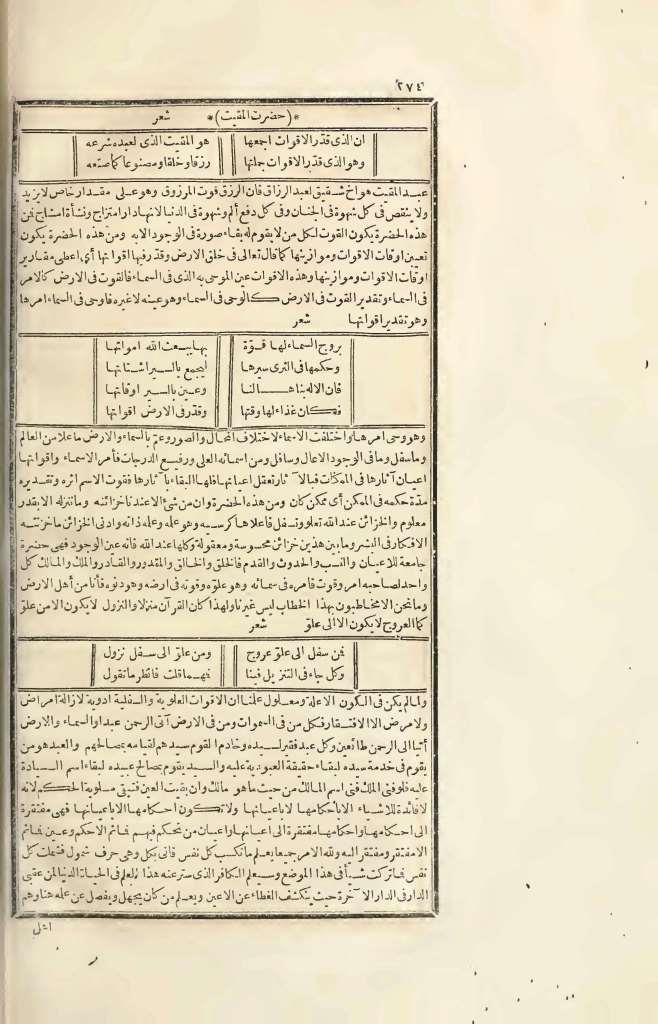 ٢٧٤
*(حضرت المقيت)* شعر
ان الذى قدّر الاقوات اجمعها هو المقيت الذى لعبده شرعه
وهو الذى قدّر الاقوات جملتها رزقا وخلقا ومصنوعا كما صنعه
عبد المقيت هو اخ شقيق لعبد الرزاق فان الرزق قوت المرزوق وهو على مقدار خاص لا يزيد
ولا ينقص فى كل شهوة فى الجنان وفى كل دفع ألم وشهوة فى الدنيا لانها دار امتزاج ونشأة امشاج فمن
هذه الحضرة يكون القوت لكل من لا يقوم له بقاء صورة فى الوجود الا به ومن هذه الحضرة يكون
تعيين اوقات الاقوات وموازينها كما قال تعالى فى خلق الارض وقدّر فيها اقواتها أى اعطى مقادير
اوقات الاقوات وموازينها وهذه الاقوات عين الموحى به الذى فى السماء فالقوت فى الارض كالامر
فى السماء وتقدير القوت فى الارض كالوحى فى السماء وهو عينه لا غيره فاوحى فى السماء امرها
وهو تقدير اقواتها شعر
بروج السماء لها قوّة بها يبعث الله امواتها
وحكمها فى الثرى سيرها ليجمع بالسير اشتاتها
فان الاله بنا هالنا وعين بالسير اوقاتها
فكان غذاء لها وقتها وقدّر فى الارض اقواتها
وهو وحى امرها واختلفت الاسماء لاختلاف المحال والصور وعمّ بالسماء والارض ما علا من العالم
وما سفل وما فى الوجود الا عال وسافل ومن اسمائه العلى ورفيع الدرجات فأمر الاسماء واقواتها
اعيان آثارها فى الممكنات فبالآثار تعقل اعيانها فلها البقاء بآثارها فقوت الاسم اثره وتقديره
مدّة حكمه فى الممكن أى ممكن كان ومن هذه الحضرة وان من شىء الا عندنا خزائنه وما ننزله الا بقدر
معلوم والخزائن عند الله تعلو وتسفل فأعلاها كرسيه وهو علمه وعلمه ذاته وادنى الخزائن ما خزنته
الافكار فى البشر وما بين هذين خزائن محسوسة ومعقولة وكلها عند الله فانه عين الوجود فهى حضرة
جامعة للاعيان والنسب والحدوث والقدم فالخلق والخالق والمقدور والقادر والملك والمالك كل
واحد لصاحبه امر وقوت فامره فى سمائه وهو علوّه وقوته فى ارضه وهو دنوه فأنا من أهل الارض
وما نحن الا مخاطبون بهذا الخطاب ليس غيرنا ولهذا كان القرآن منزلا والنزول لا يكون الا من علوّ
كما العروج لا يكون الا الى علوّ شعر
فمن سفل الى علوّ عروج ومن علوّ الى سفل نزول
وكل جاء فى التنزيل فينا فهما قلت فانظر ما نقول
ولما لم يكن فى الكون الا علة ومعلول علمنا ان الاقوات العلوية والسفلية ادوية لازالة امراض
ولا مرض الا الافتقار فكل من فى السموات ومن فى الارض آتى الرحمن عبدا والسماء والارض
أتيا الى الرحمن طائعين وكل عبد فقير لسيده وخادم القوم سيدهم لقيامه بمصالحهم والعبد هو من
يقوم فى خدمة سيده لبقاء حقيقة العبودية عليه والسيد يقوم بمصالح عبيده لبقاء اسم السيادة
عليه فلو فنى الملك فنى اسم المالك من حيث ما هو مالك وان بقيت العين فتبقى مسلوبة الحكم لانه
لا فائدة للاشياء الا باحكامها لا باعيانها ولا تكون احكامها الا باعيانها فهى مفتقرة
الى احكامها واحكامها مفتقرة الى اعيانها واعيان من تحكم فيهم فما ثم الا حكم وعين فما ثم
الا مفتقر ومفتقر اليه ولله الامر جميعا يعلم ما تكسب كل نفس فأتى بكل وهى حرف شمول فشملت كل
نفس فما تركت شيأ فى هذا الموضع وسيعلم الكافر الذى ستر عنه هذا العلم فى الحياة الدنيا لمن عقبى
الدار فى الدار الآخرة حيث ينكشف الغطاء عن الاعين ويعلم من كان يجهل ويفصل عن علمه هنا وهم